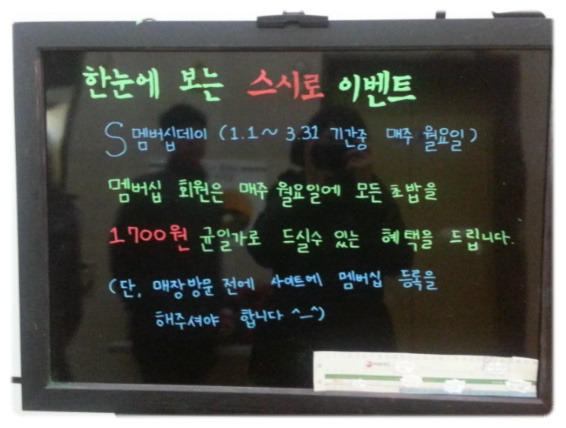 한눈에 보는 스시로 이벤트
S 멤버십데이 (1.1~3.31 기간중 매주 월요일)
멤버십 회원은 매주 월요일에 모든 초밥을
1700원 균일가로 드실수 있는 혜택을 드립니다.
(단, 매장방문 전에 사이트에 멤버십 등록을
해주셔야 합니다 ^_^)